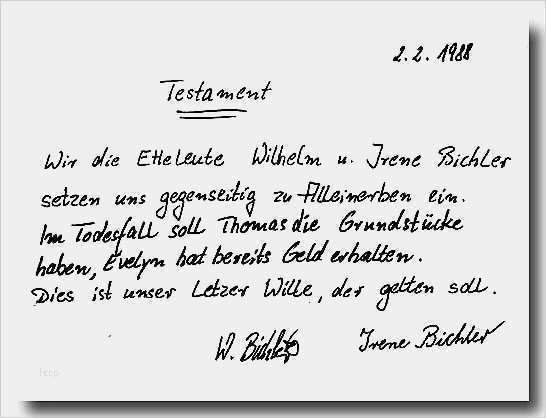 2.2.1988
Testament
Wir die Eheleute Wilhelm u. Irene Bichler
setzen uns gegenseitig zu Alleinerben ein.
Im Todesfall soll Thomas die Grundstücke
haben, Evelyn hat bereits Geld erhalten.
Dies ist unser Letzer Wille, der gelten soll.
W. Bichler Irene Bichler